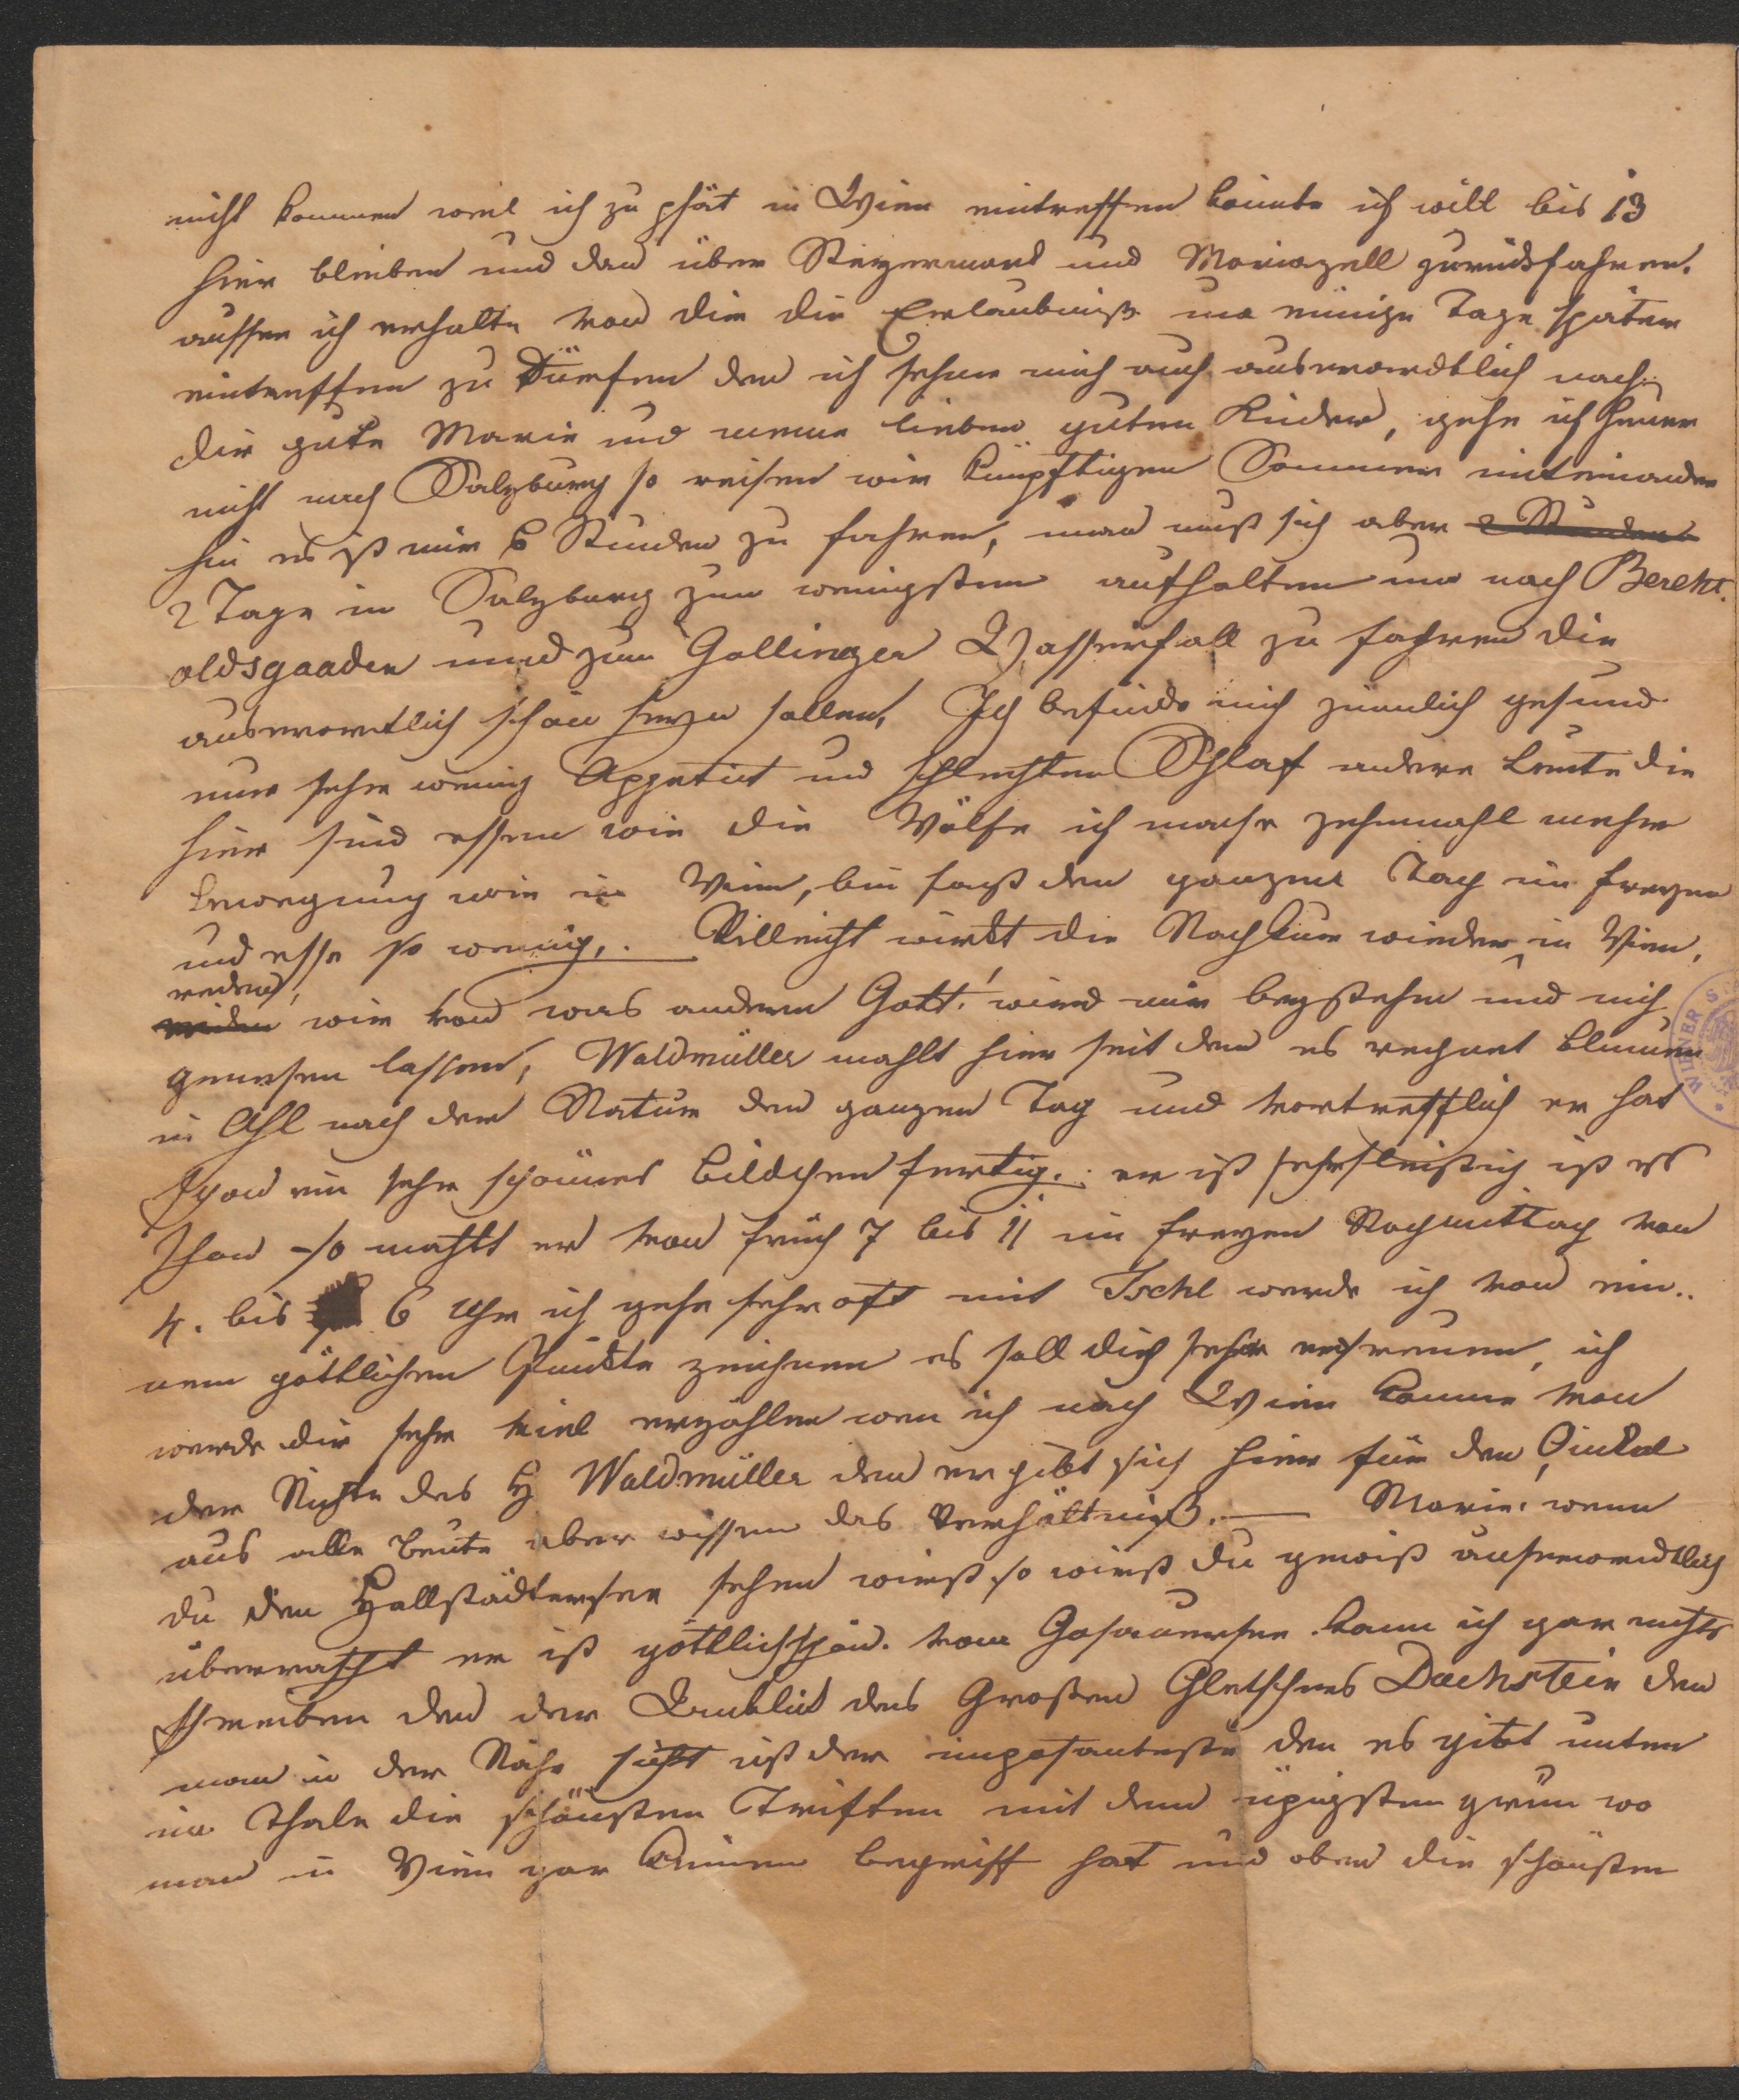 nicht kommen weil ich zu spät in Wien eintreffen könnte ich will bis 13
hier bleiben und dan über Steyermark und Mariazell zurückfahren.
ausser ich erhalte von dir die Erlaubniß um einige Tage später
eintreffen zu dürfen den ich sehne mich auch auserordtlich nach
dir gute Marie und meine lieben guten Kinder, gehe ich heuer
nicht nach Salzburg so reisen wir künftigen Sommer miteinander
hin es ist nur 6 Stunden zu fahren, man muß sich aber 2 Stunden
2 Tage in Salzburg zum wenigsten aufhalten um nach Bercht.
oldsgaaden und zum Gollinger Wasserfall zu fahren die
auserorntlich schön seyn sollen, Ich befinde mich zimmlich gesund
nur sehr wenig Appetit und schlechten Schlaf andere Leute die
hier sind essen wie die Wölfe ich mache zehnmahl mehr
Bewegung wie in Wien, bin fast den ganzen Tag im freyen
und esse so wenig,. Villeicht wirkt die Nachkur wieder in Wien,
reden,
reden wir von was andern Gott! wird mir beystehen und mich
genesen lassen, Waldmüller mahlt hier seit dem es regnet Blumen
in Öhl nach der Natur den ganzen Tag und vortrefflich er hat
schon ein sehr schönes Bildchen fertig. er ist sehr fleissig ist es
schön so mahlt er von früh 7 bis 11 im freyen Nachmittag von
4. bis 6 Uhr ich gehe sehr oft mit Ischl werde ich von ein..
nem göttlichen Punkte zeichnen es soll dich sehr erfreuen, ich
werde dir sehr viel erzählen wen ich nach Wien komme von
der Nichte des H Waldmüller den er gibt sich hier für den Onkel
aus alle Leute aber wissen das Verhältniß. — Marie! wenn
du den Hallstädtersee sehen wirst so wirst du gewiß auserordtlich
überrascht er ist göttlich schön. vom Gosauersee kann ich gar nichts
schreiben den der Anblick des Großen Gletschers Dachstein den
man in der Nähe sieht ist der imposanteste den es gibt unten
im Thale die schönsten Triften mit dem üpigsten grün wo
man in Wien gar keinen begriff hat und oben die schönsten
WIENER S